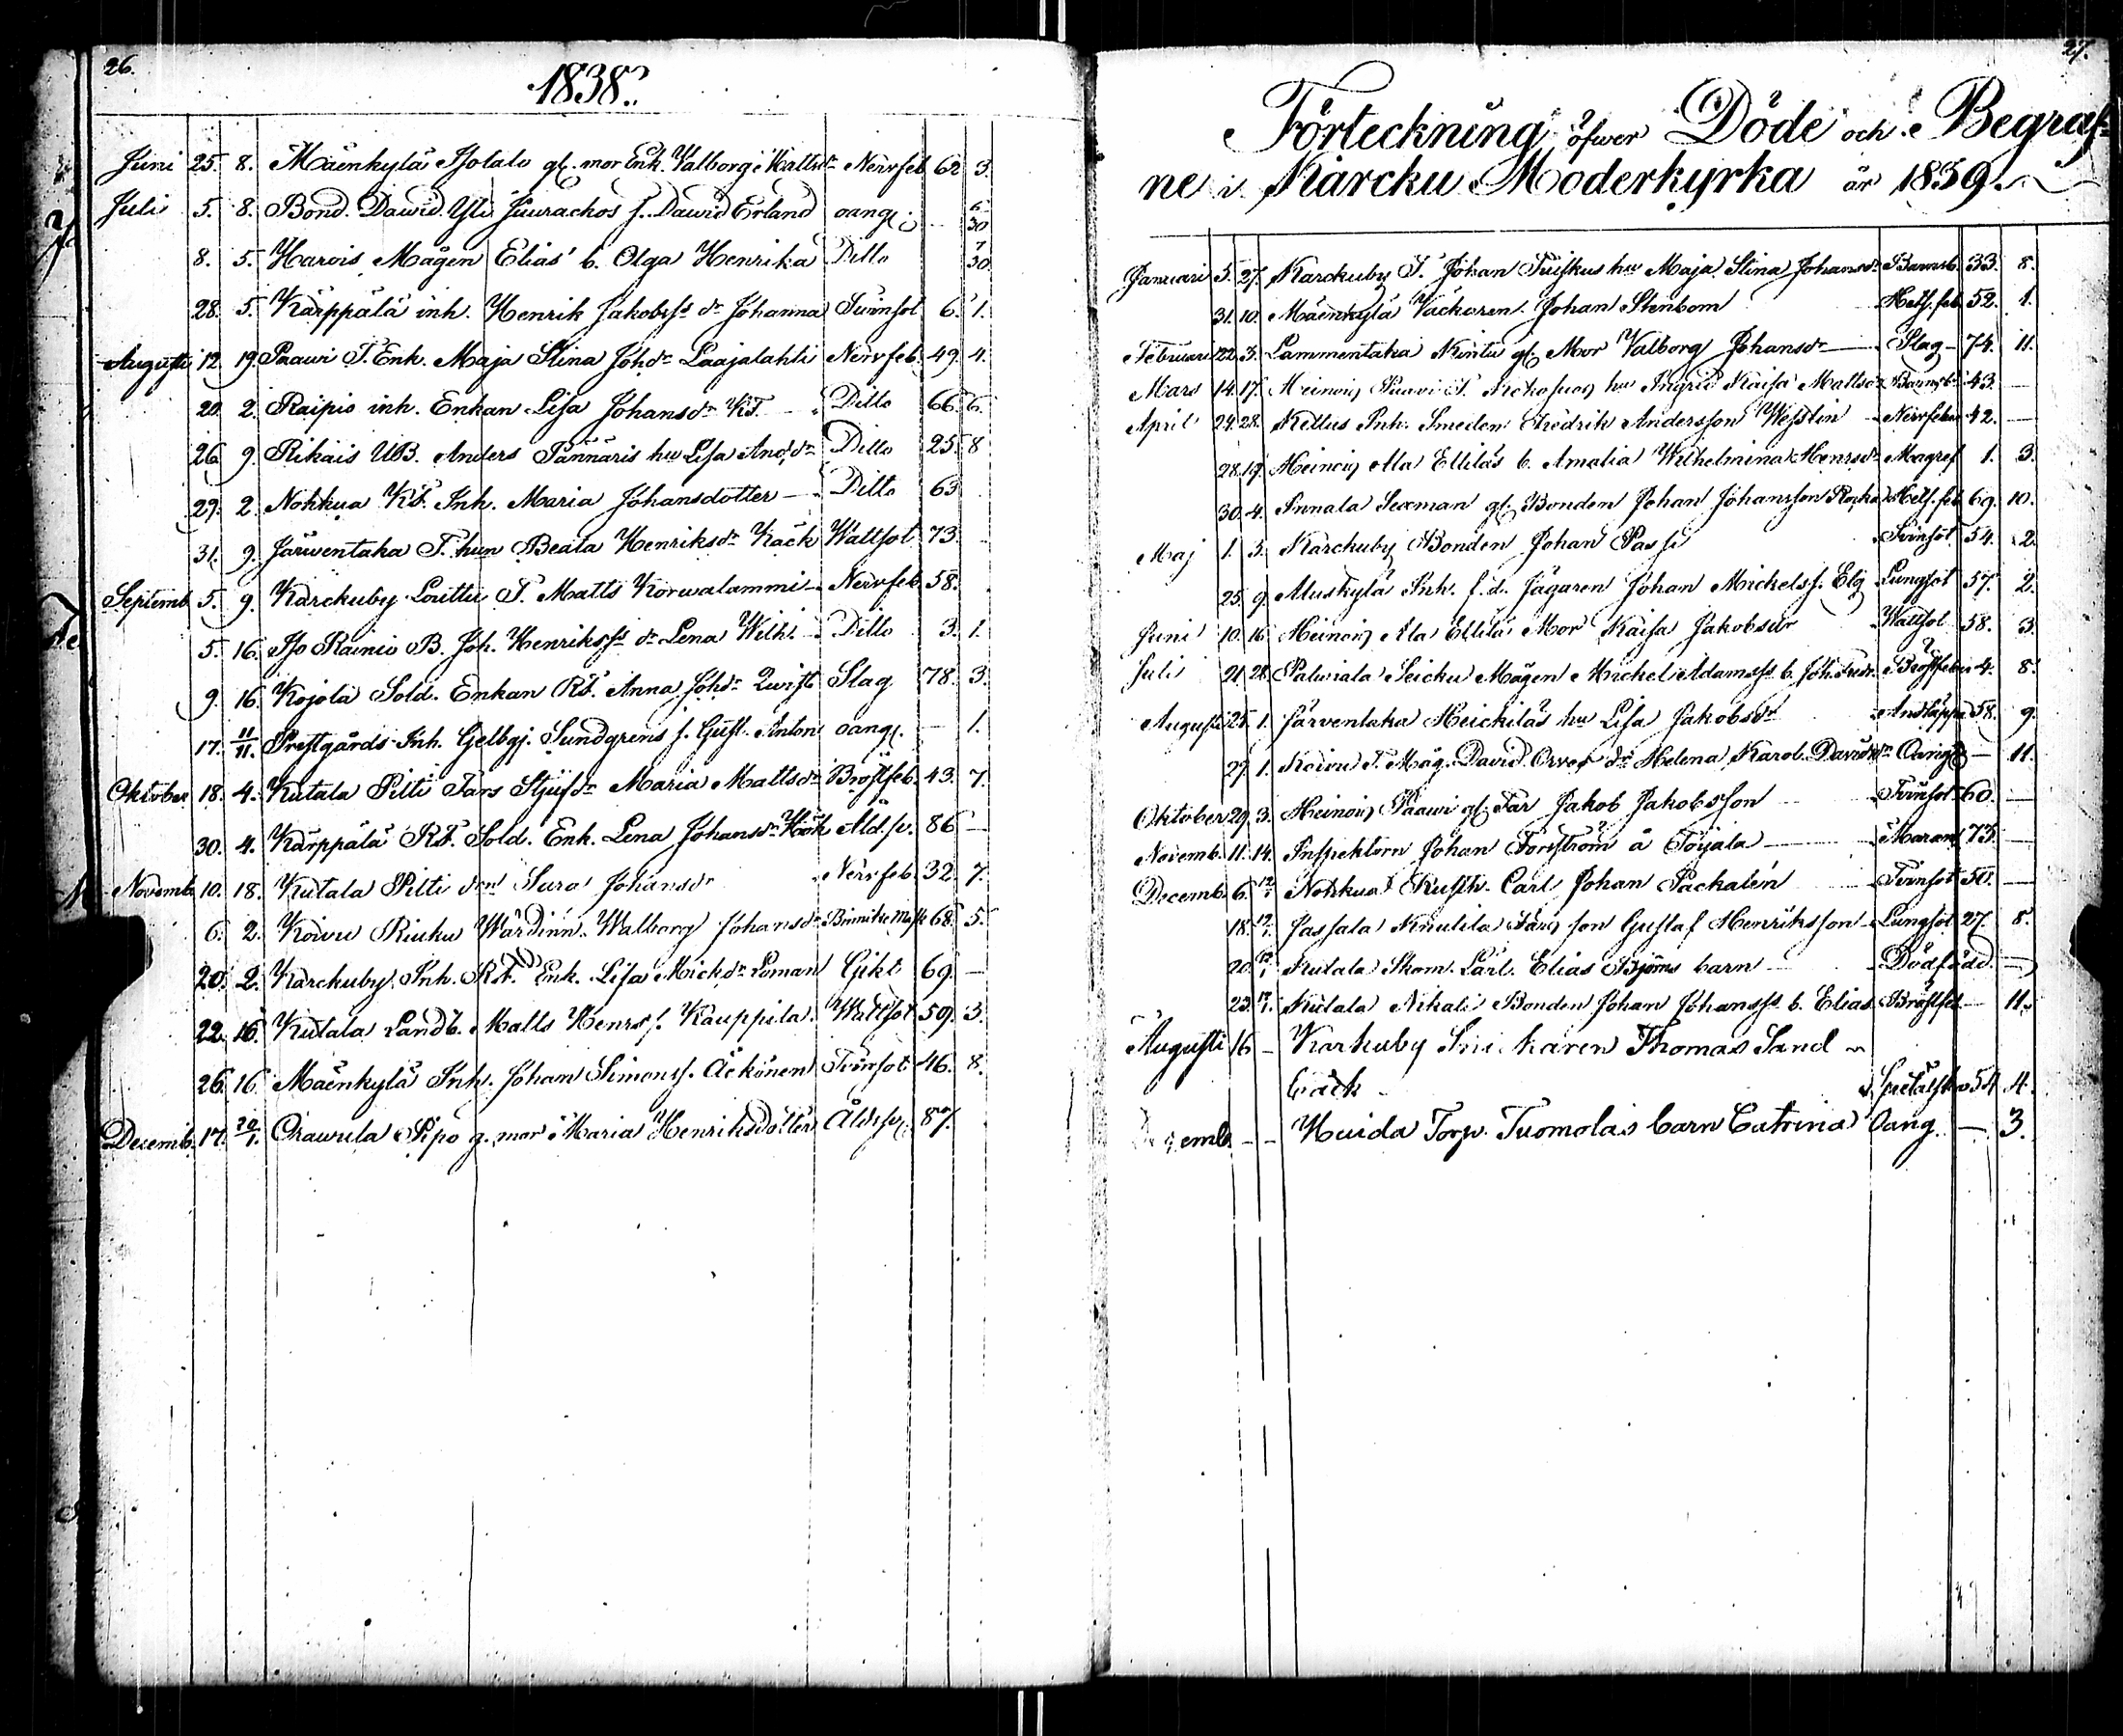 26.
1838.
Juni 25. 8. Mäenkylä Isotalo gl. mor Enk. Valborg Mattsdr Nervfeb. 62 3.
Juli 5. 8. Bond. Dawid Yli Juurackos s. Dawid Erland oang. — 6/30
8. 5. Harois Mågen Elias' b. Olga Henrika Ditto 7/30
28. 5. Kärppälä inh. Henrik Jakobss. dr Johanna Tvinsot 6. 1.
Augusti 12. 19. Paawi T. Enk. Maja Stina Johdr Laajalahti Nervfeb. 49. 4.
20. 2. Raipio inh. Enkan Lisa Johansdr Ditto 66. 6.
26. 9. Rikais UB. Anders Pännäris hu Lisa Andsdr Ditto 25. 8
29. 2. Nohkua Inh. Maria Johansdotter — Ditto 63
31. 9. Järwentaka T. hun Beata Henriksdr Käck Wattsot 73.
Septemb. 5. 9. Karckuby Louttu T. Matts Korwalammi Nervfeb. 58.
5. 16. Iso Rainio B. Joh. Henrikss. dr Lena Wilh. Ditto 3. 1.
9. 16. Kojola Sold. Enkan Anna Johdr Qwist Slag 78. 3.
17. 11/11. Prestgårds Inh. Gelbgj. Sundgrens s. Gust. Anton oang. — 1.
Oktober 18. 4. Kutala Pilti Fars Stjufdr Maria Mattsdr Bröstfeb. 43. 7.
30. 4. Kärppälä Sold. Enk. Lena Johansdr Höök Åld.sv. 86 —
Novemb. 10. 18. Kutala Pilti drn Sara Johansdr Nervfeb. 32. 7.
6. 2. Koivu Riuku Wärdinn. Walborg Johansdr 68. 5.
20. 2. Karckuby. Inh. Enk. Lisa Micksdr Loman Gikt 69. —
22. 16. Kutala Landb. Matts Henrs s. Kauppila Wattsot 59. 3.
26. 16. Mäenkylä Inh. Johan Simonss. Äckönen Tvinsot 46. 8.
Decemb. 17. 20/1. Chawula Pipo g. mor Maria Henriksdotter Åldrsv. 87.
27.
Förteckning öfwer Döde och Begraf-
ne i Karcku Moderkyrka år 1839.
Januari 5. 27. Karckuby T. Johan Tuiskus hu Maja Stina Johansdr Barnsb. 33. 8.
31. 10. Mäenkylä Väckaren Johan Stenbom Hetf.feb. 52. 1.
Februari 22. 3. Lammentaka Kinttu gl. Mor Valborg Johansdr — Slag — 74. 11.
Mars 14. 17. Heinois Paavi T. hu Ingrid Kaisa Mattsdr Barnsb. 43. —
April 24. 28. Kellus Inh. Smeden Fredrik Andersson Westlin Nervfeber 42. —
28. 19. Heinois Ala Ellilä's b. Amalia Wilhelmina Henrsdr Magref 1. 3.
30. 4. Innala Sexman gl. Bonden Johan Johansson Hetf.feb. 69. 10.
Maj 1. 3. Karckuby Bonden Johan Passi Tvinsot 54. 2.
25. 9. Aluskylä Inh. f.d. Jägaren Johan Mickelss. Elg Lungsot 57. 2.
Juni 10. 16. Heinois Ala Ellilä Mor Kaisa Jakobsdr Wattsot 58. 3.
Juli 21. 28. Palviala Seicku Mågen Michel Adamss. b. Joh. Fredr. Bröstfeber 4. 8.
Augusti 25. 1. Järventaka Heickilä's hu Lisa Jakobsdr Andtäppa 58. 9.
27. 1. Koivu T. Måg. David Orver dr Helena Karol. Davidsdr Oang. — 11.
Oktober 29. 3. Heinois Paawi gl. Far Jakob Jakobsson — Tvinsot 60. —
Novemb. 11. 14. Inspektorn Johan Forsström å Töyälä — Maran 73. —
Decemb. 6. Nohkua Rusth. Carl Johan Packalén Tvinsot 50. —
18. Jassala Knuutila Fars son Gustaf Henriksson Lungsot 27. 8.
20. Kutala Skom. Lärl. Elias Björns barn — Dödfödd. —
23. Kutala Nikali Bonden Johan Johanss. b. Elias Bröstfeb. — 11.
Augusti 16 — Karkuby Snickaren Thomas Sand
bäck Spetälska 54. 4.
Decemb. — — Huida Torp. Tuomolas barn Catrina Oang. — 3.